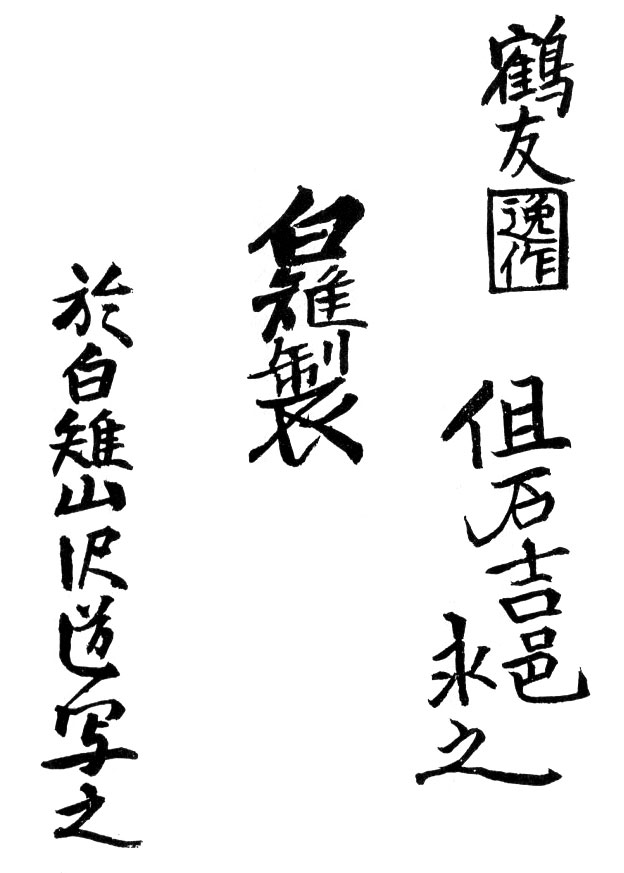 鶴友
逸作
但石吉邑
永之
白雉製
於白雉山沢道写之